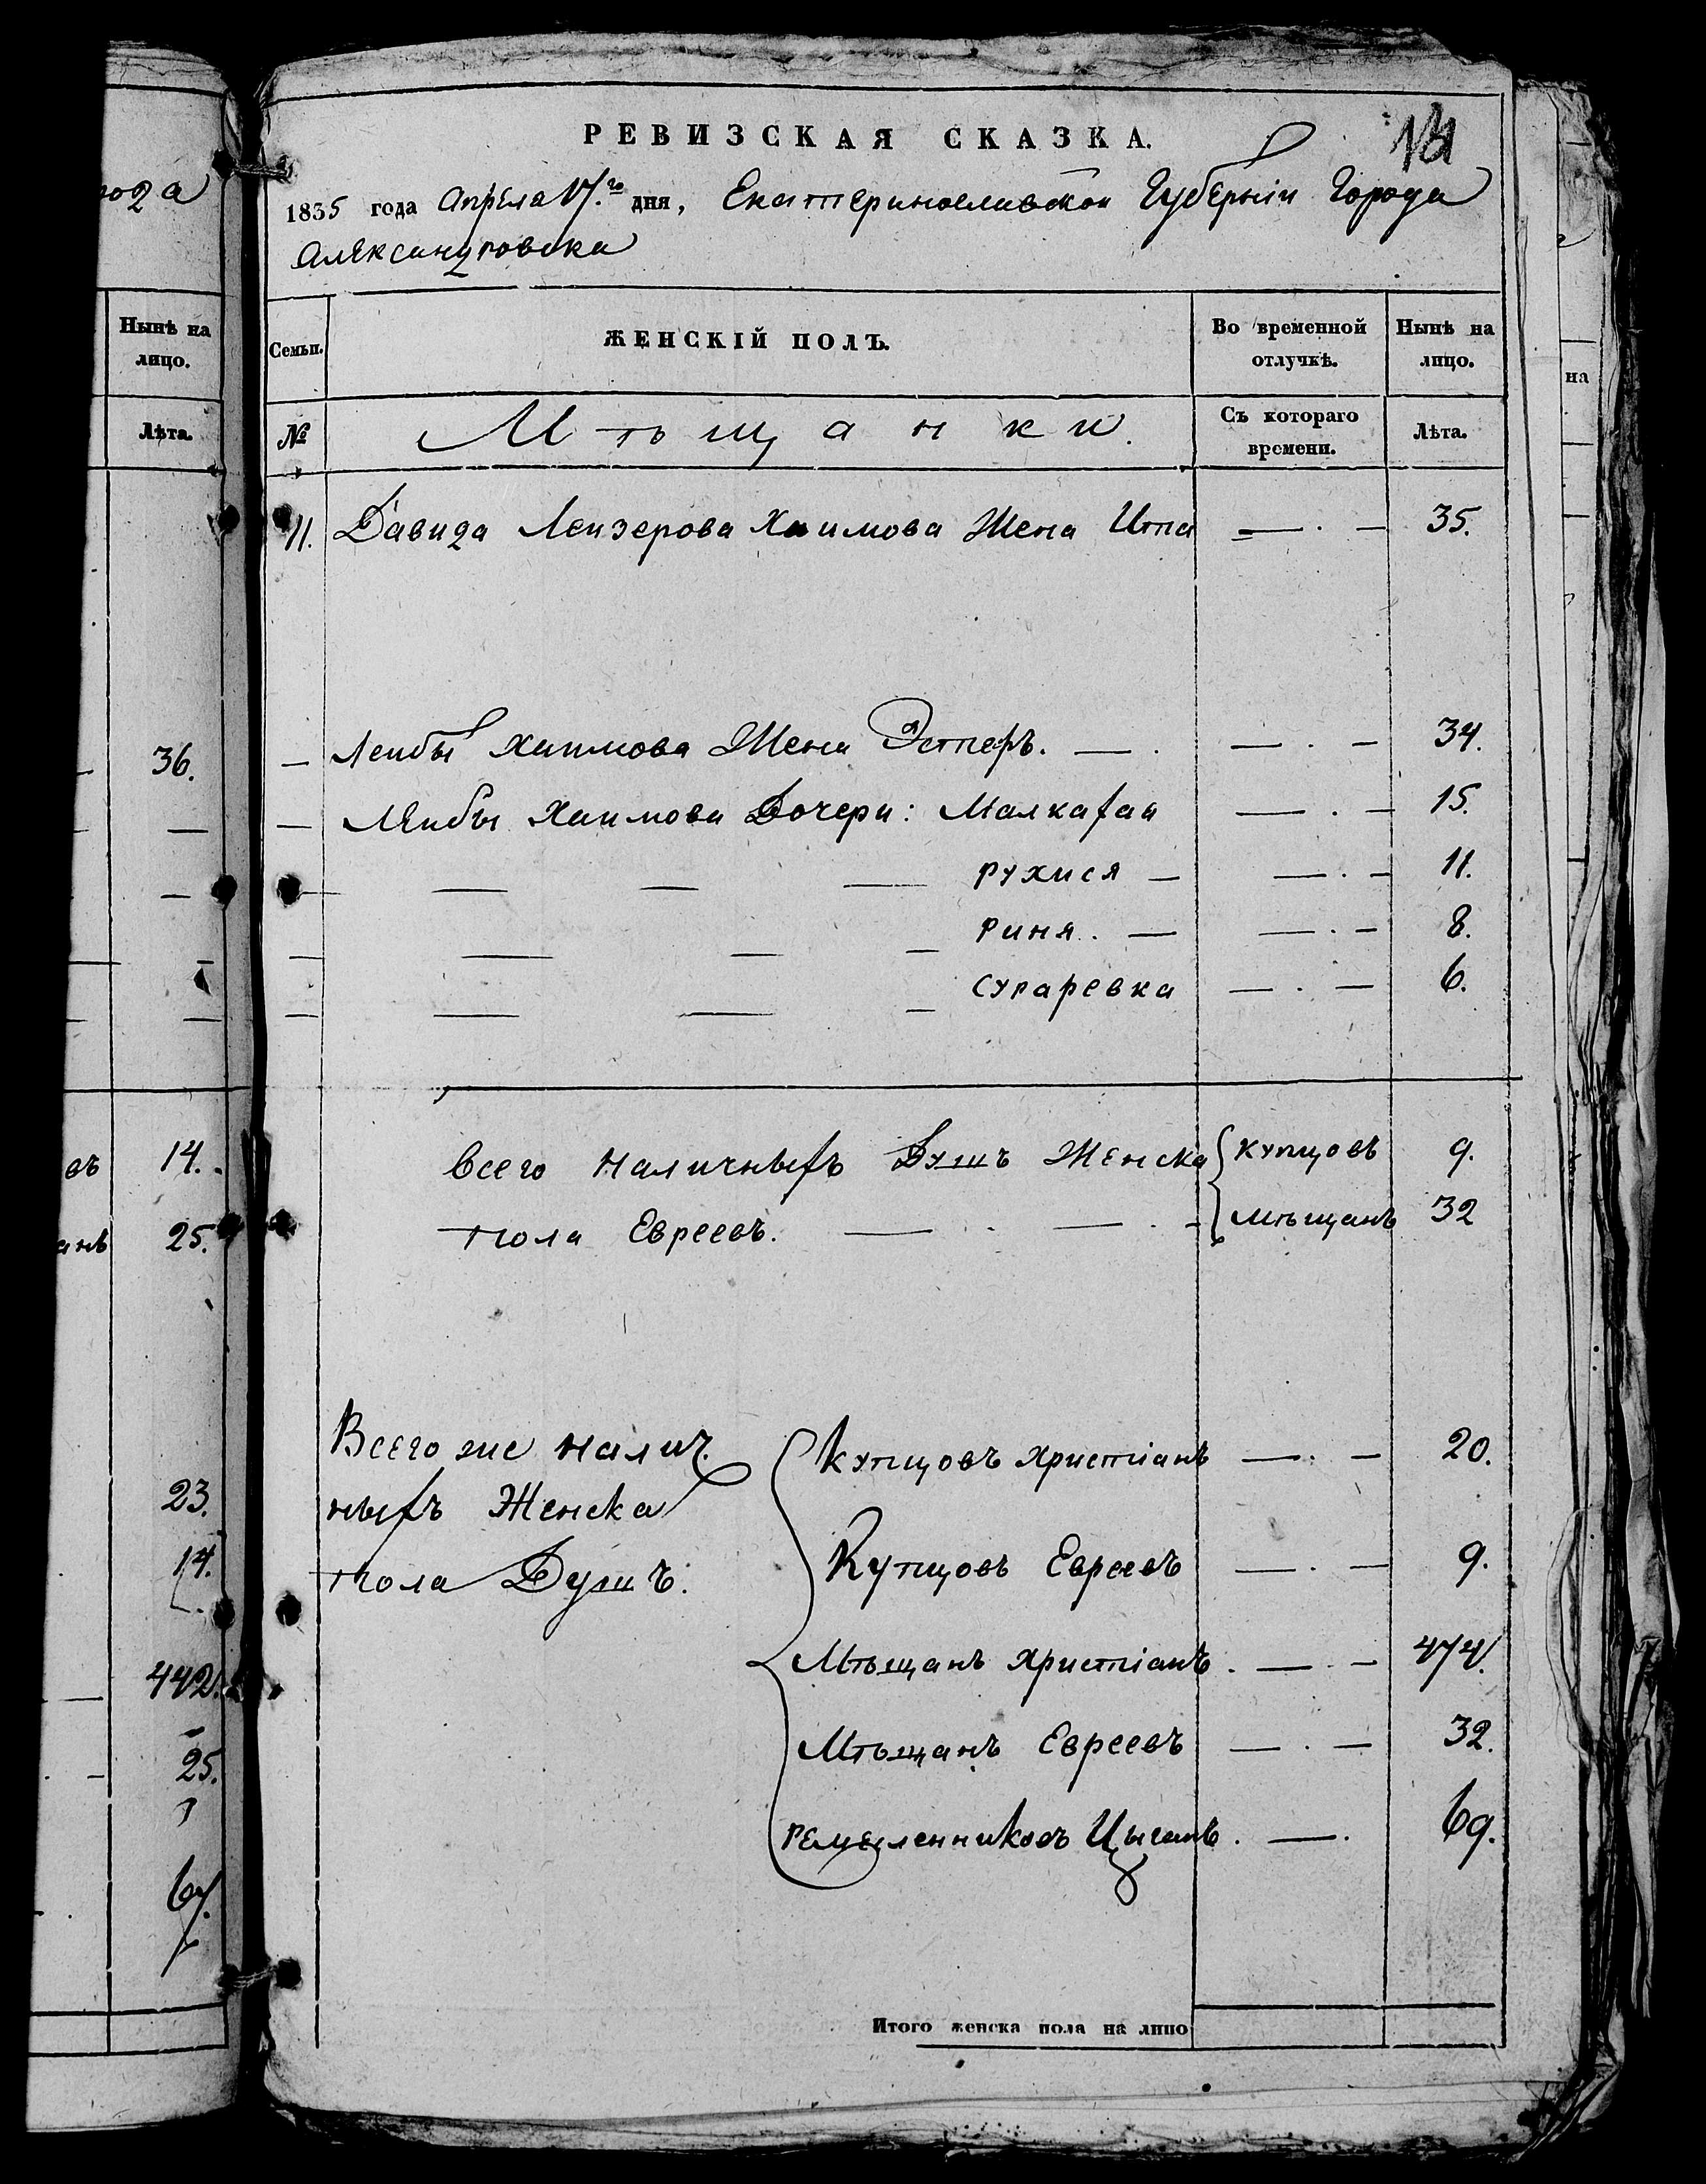 года
Нынѣ на
лицо.
Лѣта.
36.
въ 14.
анъ 25.
23.
14.
442.
25.
67.
РЕВИЗСКАЯ СКАЗКА.
1835 года Апреля 17.го дня, Екатеринославской Губерніи Города
Александровска
Семьи. ЖЕНСКІЙ ПОЛЪ. Во временной отлучкѣ. Нынѣ на лицо.
№ Мѣщанки. Съ котораго времени. Лѣта.
11. Давида Леизерова Хаимова Жена Итта — . — 35.
— Леибы Хаимова Жена Эстеръ. — . — . — 34.
— Леибы Хаимова Дочери: Малкаfая — . — 15.
— — — — Рухися — — . — 11.
— — — — Риня. — — . — 8.
— — — — Сураревка — . — 6.
Всего Наличныfъ Душъ Женска { Купцовъ 9.
пола Евреевъ. — . — . — { Мѣщанъ 32
Всего же налич.
ныfъ Женска
пола Душъ.
Купцовъ Христіанъ — . — 20.
Купцовъ Евреевъ — . — 9.
Мѣщанъ Христіанъ . — . — 474.
Мѣщанъ Евреевъ — . — 32.
Ремесленниковъ Цыганъ . — . 69.
Итого женска пола на лицо
на